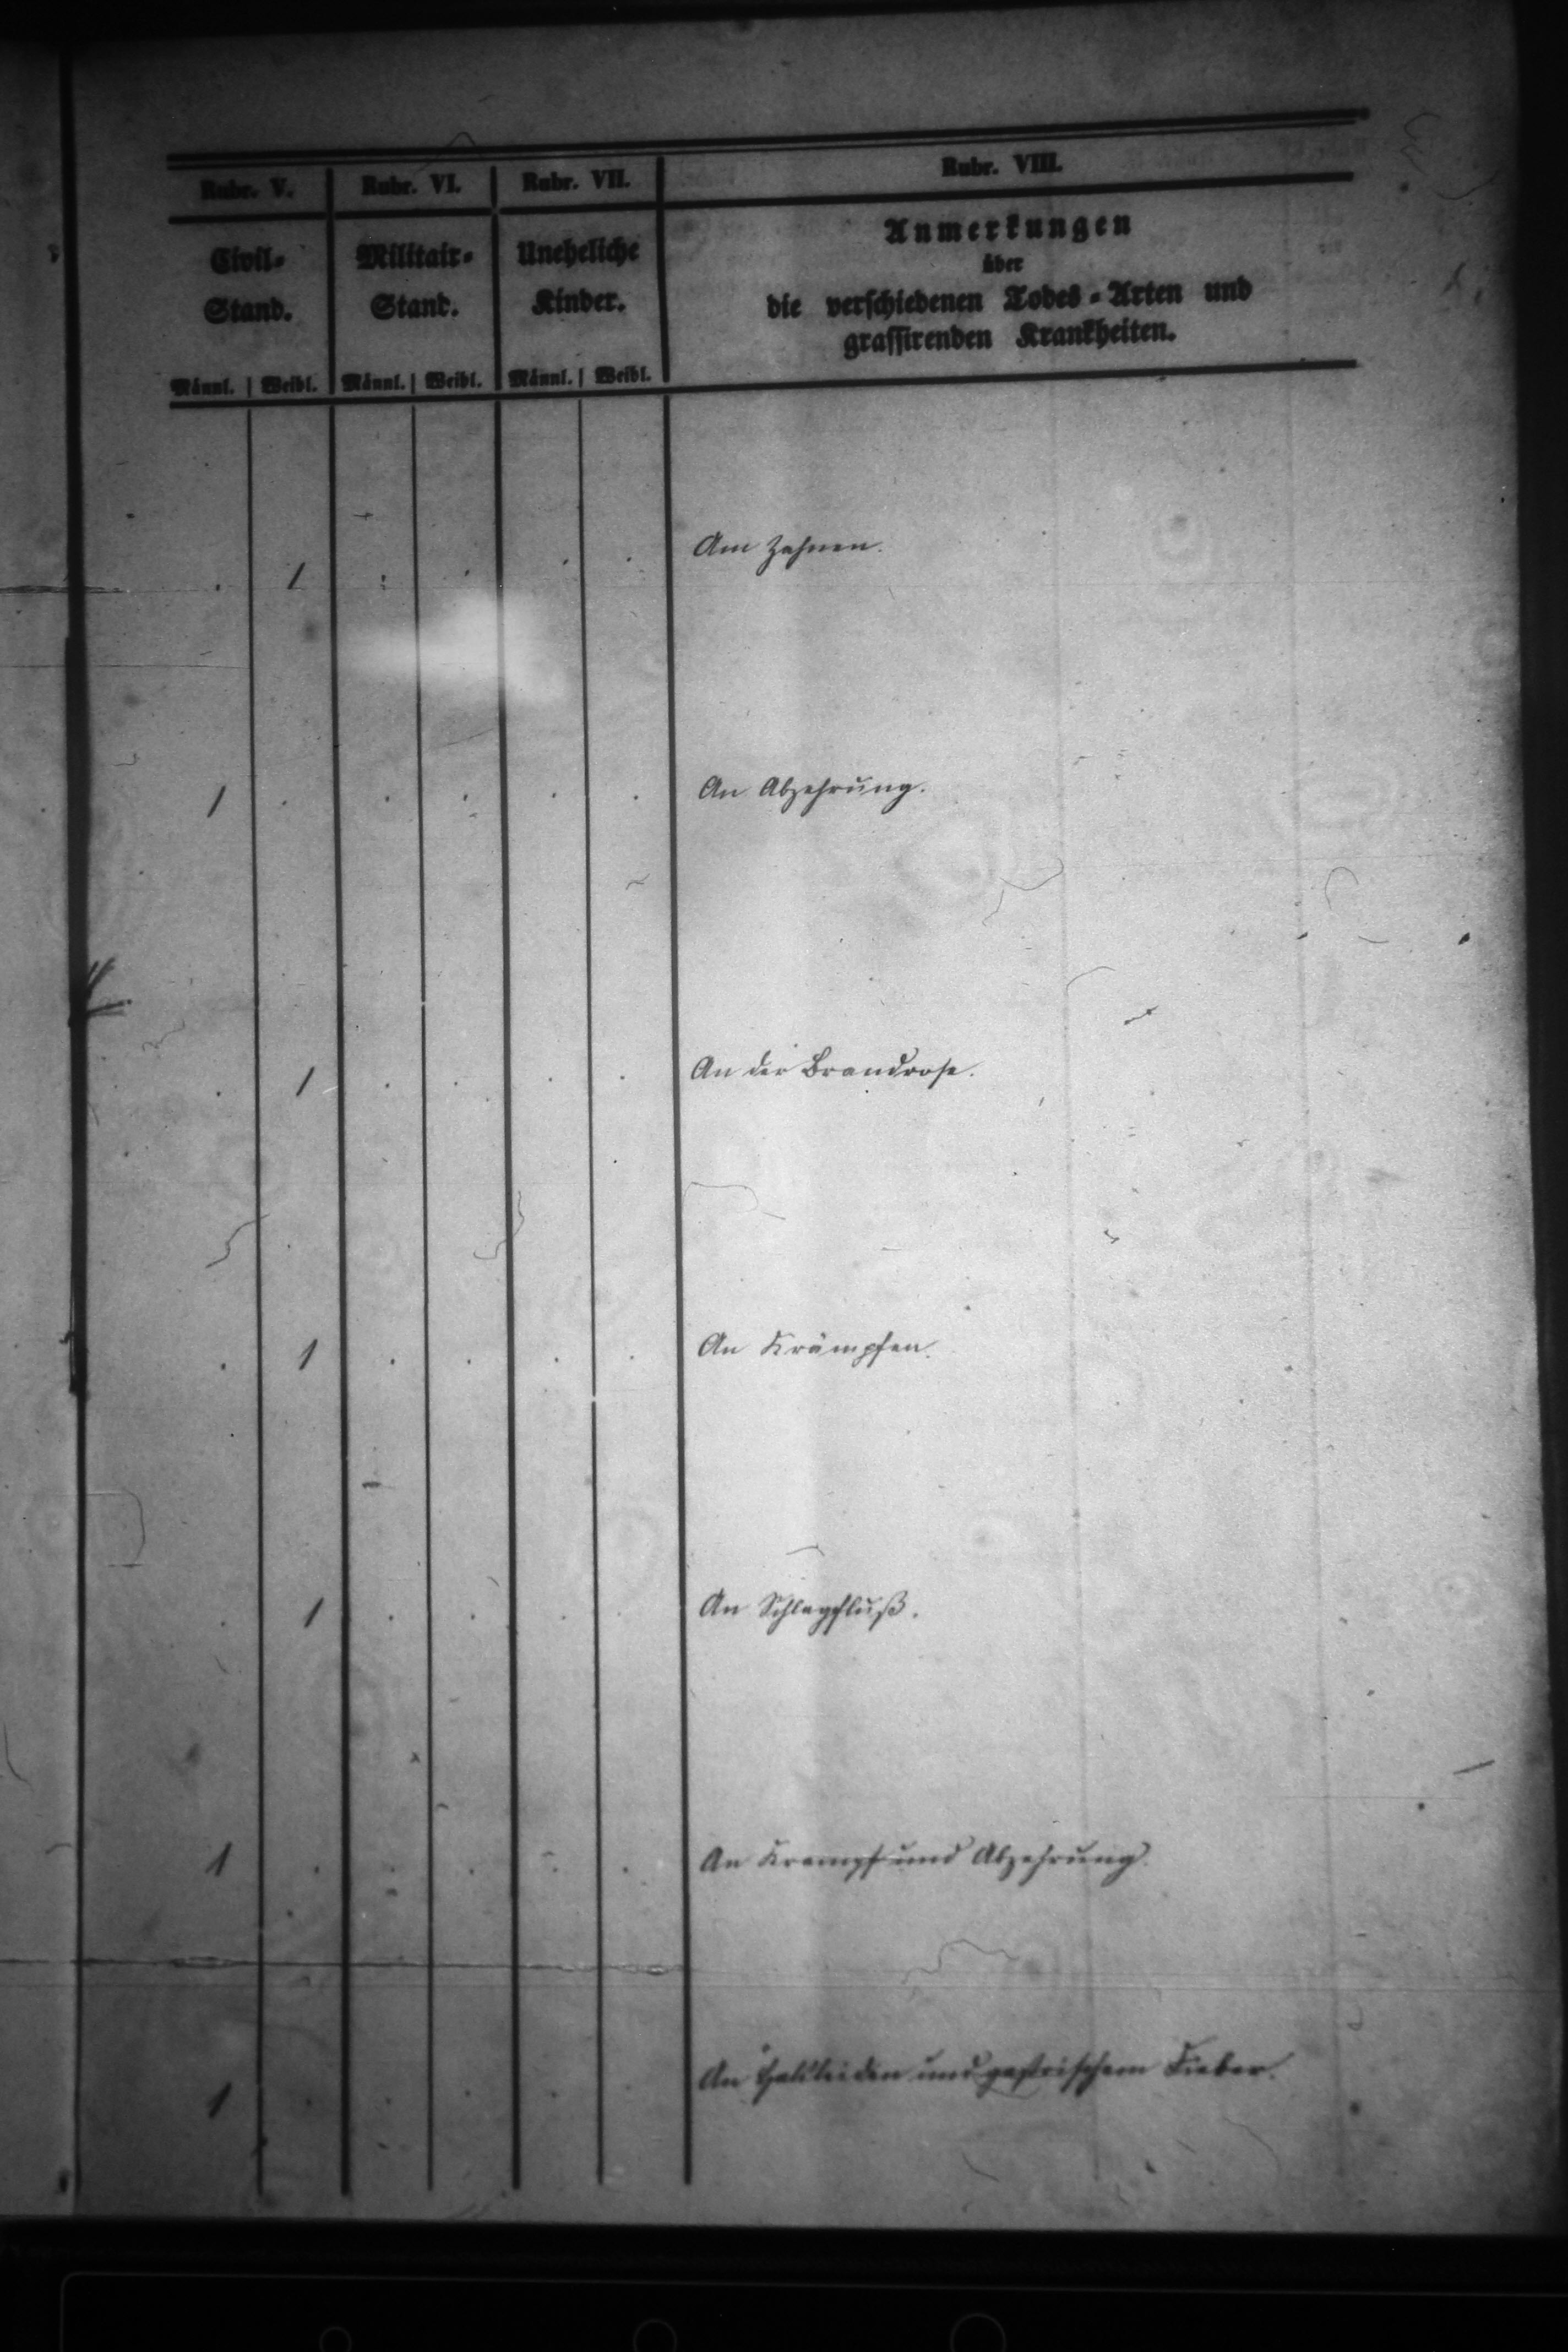 Rubr. V. Rubr. VI. Rubr. VII. Rubr. VIII.
Civil- Militair- Uneheliche Anmerkungen
Stand. Stand. Kinder. über
die verschiedenen Todes-Arten und
grassirenden Krankheiten.
Männl. | Weibl. Männl. | Weibl. Männl. | Weibl.
. 1 . . . . Am Zahnen.
1 . . . . . An Abzehrung.
. 1 . . . . An der Brandrose.
. 1 . . . . An Krämpfen.
. 1 . . . . An Schlagfluß.
1 . . . . . An Krampf und Abzehrung.
1 . . . . . An Halsleiden und gastrischem Fieber.